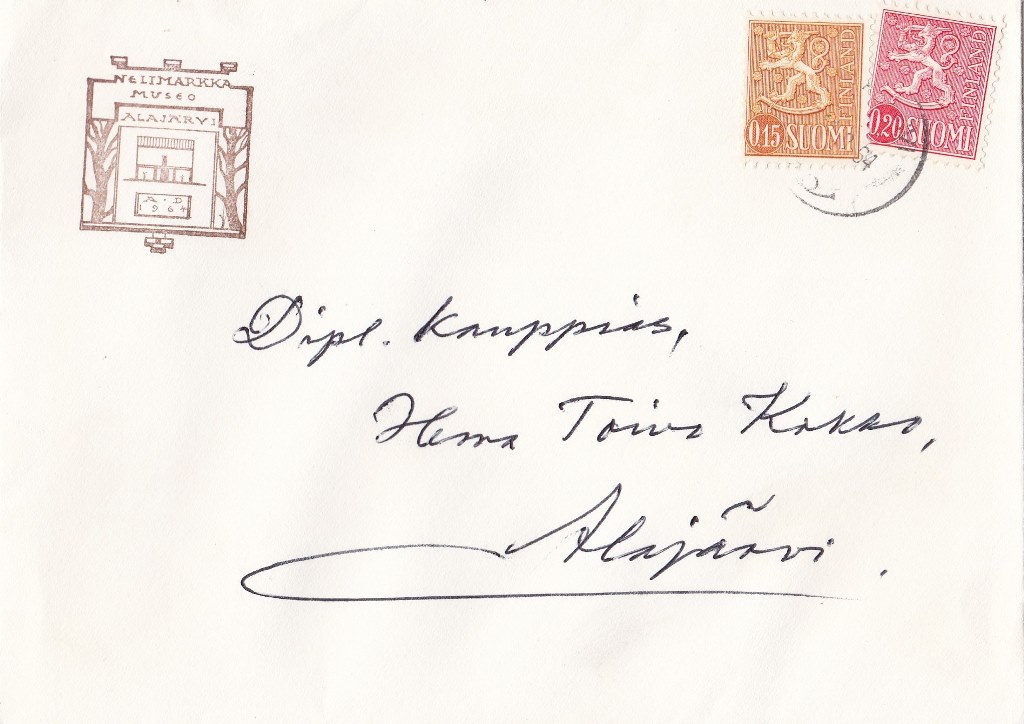 NELIMARKKA
MUSEO
ALAJÄRVI
A·D
1964
0.15 SUOMI
FINLAND
0.20 SUOMI
FINLAND
Dipl. kauppias,
Herra Toivo Kokko,
Alajärvi.